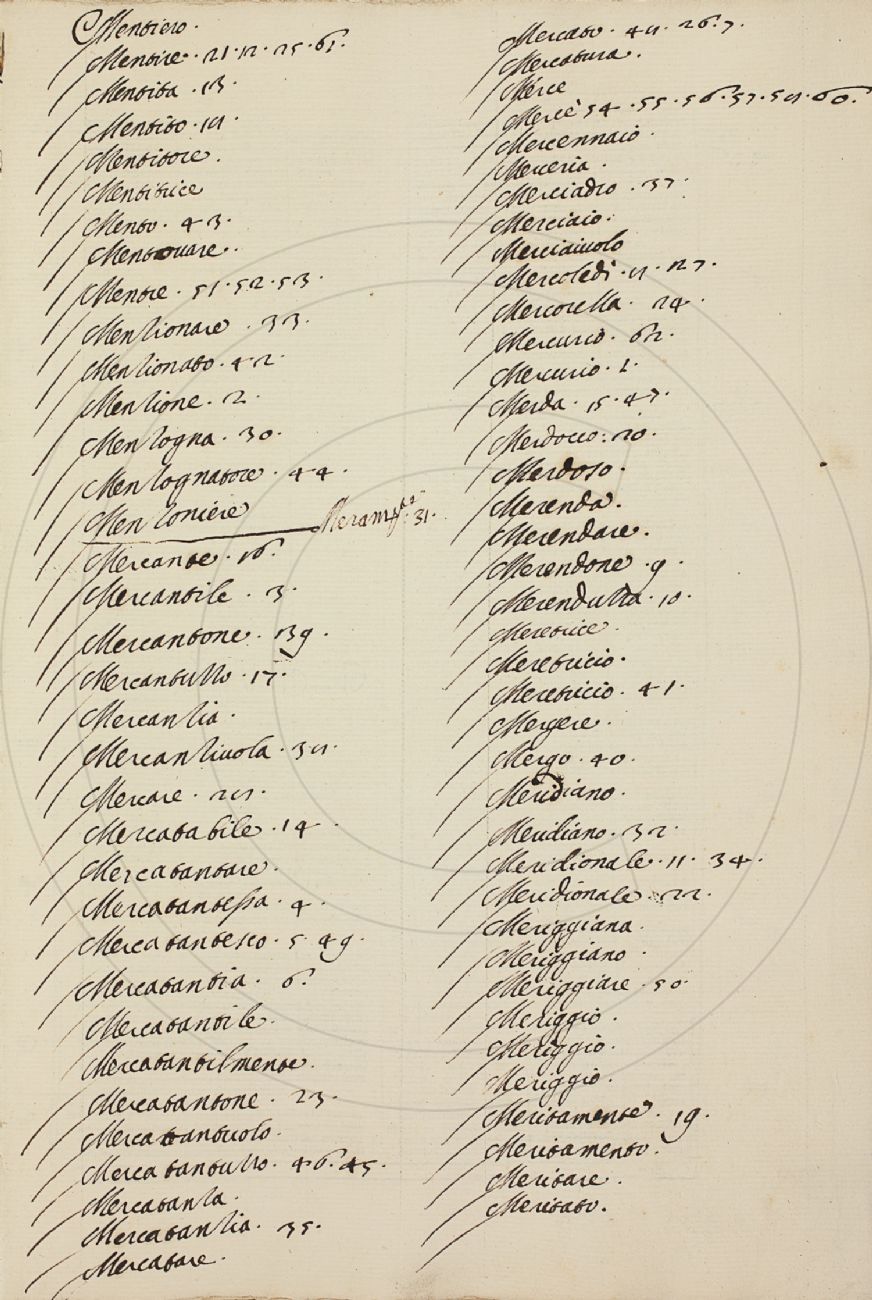 Mentiero.
Mentire. 21. 12. 25. 61.
Mentita. 13.
Mentito. 19.
Mentitore.
Mentitrice
Mento. 43.
Mentovare.
Mentre. 51. 52. 53.
Menzionare. 33.
Menzionato. 42.
Menzione. 2.
Menzogna. 30.
Menzognatore. 44.
Menzoniere
31.
Mercante. 16.
Mercantile. 3.
Mercantone. 139.
Mercantuzzo. 17.
Mercanzia.
Mercanziuola. 39.
Mercare. 29.
Mercatabile. 14.
Mercatantare.
Mercatantessa. 4.
Mercatantesco. 5. 49.
Mercatantia. 6.
Mercatantile.
Mercatantilmente.
Mercatantone. 23.
Mercatantuolo.
Mercatantuzzo. 46. 45.
Mercatanza.
Mercatanzia. 35.
Mercatare.
Mercato. 49. 26. 7.
Mercatura.
Mérce
Mercè 54. 55. 56. 57. 59. 60.
Mercennaio.
Merceria.
Merciadro. 37.
Merciaio.
Merciaiuolo
Mercoledì. 9. 27.
Mercorella. 24.
Mercurio. 62.
Mercurio. 1.
Merda. 15. 47.
Merdocco. 20.
Merdoso.
Merenda.
Merendare.
Merendone. 9.
Merenduzza. 10.
Meretrice.
Meretricio.
Meretricio. 41.
Mergere.
Mergo. 40.
Meridiano.
Meridiano. 32.
Meridionale. 11. 34.
Meridionale. 22.
Meriggiana.
Meriggiano.
Meriggiare. 50.
Meriggio.
Meriggio.
Meriggio.
Meritamente. 19.
Meritamento.
Meritare.
Meritato.